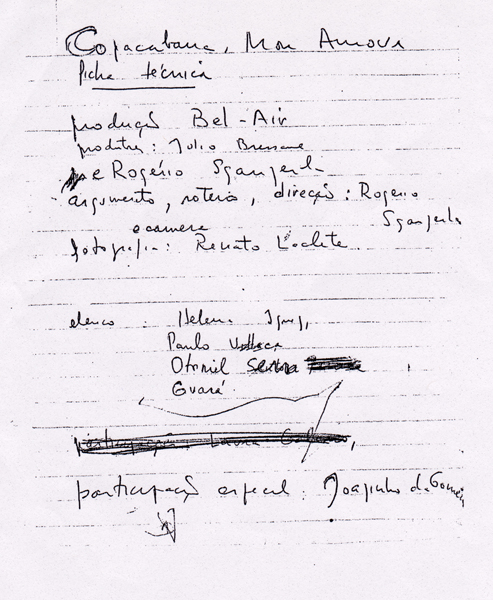 Copacabana, Mon Amour
ficha técnica
produção Bel-Air
produtres: Julio Bressane
e Rogério Sganzerla
argumento, roteiro, direção: Rogerio
Sganzerla
e camera
fotografia: Renato Laclete
elenco: Helena Ignez,
Paulo Villaça
Otoniel Serra
Guará
participação, Laura
participação especial: Joãozinho da Goméia